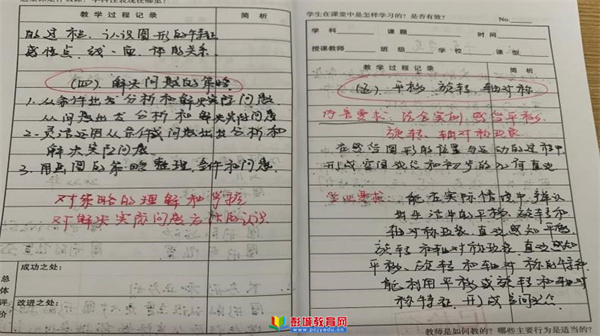 教学过程记录
简析
的过程,认识图形的特征
感悟点、线、面、体的关系。
(四)解决问题的策略
1.从条件出发分析和解决实际问题
从问题出发分析和解决实际问题
2.灵活运用从条件或问题出发分析和
解决实际问题
3.用画图的策略整理条件和问题
对策略的理解和掌握
对解决实际问题方法的认识
成功之处:
总体评价
改进之处:
学生在课堂中是怎样学习的?是否有效?
No.
学科
课题
时间
授课教师
班级
学校
课型
教学过程记录
简析
(五)平移、旋转、轴对称
内容要求:结合实例,感受平移、
旋转、轴对称现象
在感受图形的位置与运动的过程中
形成空间观念和初步的几何直观
学业要求:能在实际情境中,辨认
出生活中的平移、旋转和
轴对称现象,直观感知平移、
旋转和轴对称现象,直观感知
平移、旋转和轴对称的特征
能利用平移或旋转和轴对
称特征
彭城教育网
www.pcjyedu.com
教师是如何教的?哪些主要行为是适当的?